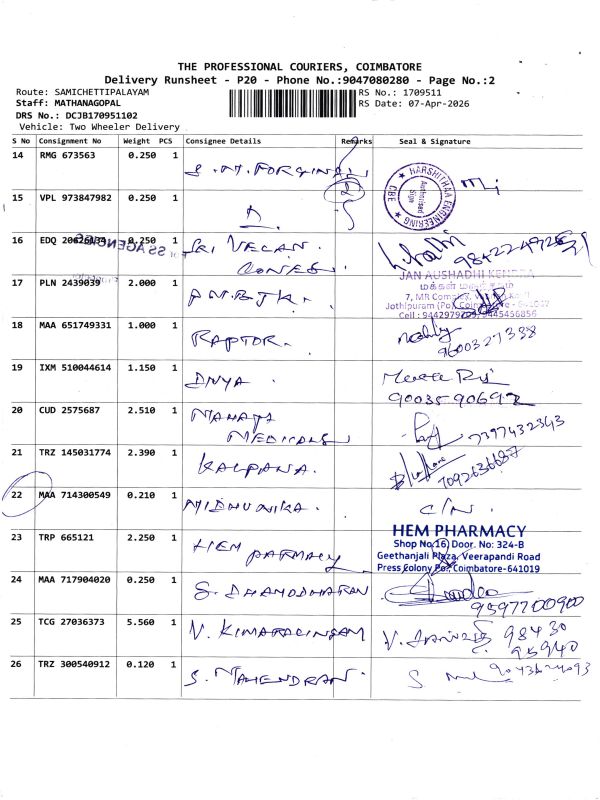 THE PROFESSIONAL COURIERS, COIMBATORE
Delivery Runsheet - P20 - Phone No.:9047080280 - Page No.:2
Route: SAMICHETTIPALAYAM
RS No.: 1709511
Staff: MATHANAGOPAL
RS Date: 07-Apr-2026
DRS No.: DCJB170951102
Vehicle: Two Wheeler Delivery
S No Consignment No Weight PCS Consignee Details Remarks Seal & Signature
14 RMG 673563 0.250 1
HARSHITHAA ENGINEERING
CBE
Authorised Sign
15 VPL 973847982 0.250 1
16 EDQ 0.250 1 SRI VELAN
17 PLN 2439039 2.000 1 P.M.B.J.K.
JAN AUSHADHI KENDRA
மக்கள் மருந்தகம்
7, MR Complex,
Jothipuram (Po)
Cell : 9442979 9445456856
18 MAA 651749331 1.000 1 RAPTOR.
9600327388
19 IXM 510044614 1.150 1 DNYA.
9003590692
20 CUD 2575687 2.510 1
MEDICALS
7397432343
21 TRZ 145031774 2.390 1 KALPANA.
7092636687
22 MAA 714300549 0.210 1 MIDHUNIKA.
C/N.
23 TRP 665121 2.250 1 HEM PARMACY
HEM PHARMACY
Shop No.16, Door. No: 324-B
Geethanjali Plaza, Veerapandi Road
Press Colony Po, Coimbatore-641019
24 MAA 717904020 0.250 1 S. DHAMODHARAN
9597700900
25 TCG 27036373 5.560 1 V.
98430
95940
26 TRZ 300540912 0.120 1 S. MAHENDRAN.